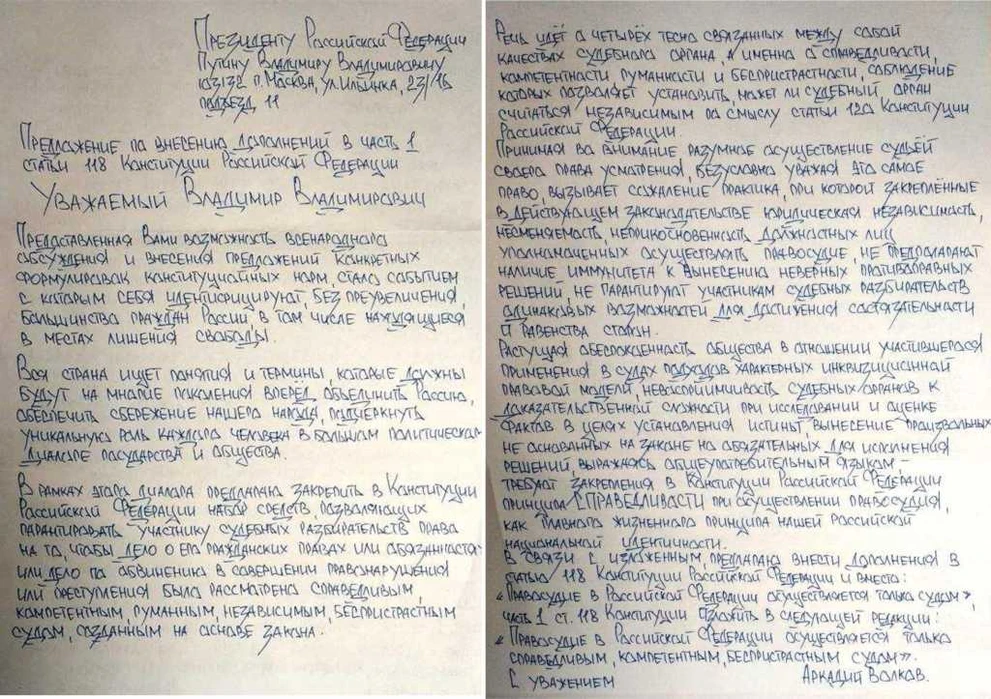 Президенту Российской Федерации
Путину Владимиру Владимировичу
103132 г. Москва, ул. Ильинка, 23/16
подъезд 11
Предложение по внесению дополнений в часть 1
статьи 118 Конституции Российской Федерации
Уважаемый Владимир Владимирович
Предоставленная Вами возможность всенародного
обсуждения и внесения предложений конкретных
формулировок конституционных норм, стала событием
с которым себя идентифицируют, без преувеличения,
большинство граждан России, в том числе находящиеся
в местах лишения свободы.
Вся страна ищет понятия и термины, которые должны
будут на многие поколения вперёд объединить Россию,
обеспечить сбережение нашего народа, подчеркнуть
уникальную роль каждого человека в большом политическом
диалоге государства и общества.
В рамках этого диалога предлагаю закрепить в Конституции
Российской Федерации набор средств, позволяющих
гарантировать участнику судебных разбирательств права
на то, чтобы дело о его гражданских правах или обязанностях
или дело по обвинению в совершении правонарушения
или преступления было рассмотрено справедливым,
компетентным, гуманным, независимым, беспристрастным
судом, созданным на основе закона.
Речь идёт о четырёх тесно связанных между собой
качествах судебного органа, а именно о справедливости,
компетентности, гуманности и беспристрастности, соблюдение
которых позволяет установить, может ли судебный орган
считаться независимым по смыслу статьи 120 Конституции
Российской Федерации.
Принимая во внимание разумное осуществление судьёй
своего права усмотрения, безусловно уважая это самое
право, вызывает сожаление практика, при которой закреплённые
в действующем законодательстве юридическая независимость,
несменяемость, неприкосновенность должностных лиц
уполномоченных осуществлять правосудие, не предполагают
наличие иммунитета к вынесению неверных противоправных
решений, не гарантируют участникам судебных разбирательств
одинаковых возможностей для достижения состязательности
и равенства сторон.
Растущая обеспокоенность общества в отношении участившегося
применения в судах подходов характерных инквизиционной
правовой модели, невосприимчивость судебных органов к
доказательственной сложности при исследовании и оценке
фактов в целях установления истины, вынесение произвольных
не основанных на законе но обязательных для исполнения
решений, выражаясь общеупотребительным языком –
требуют закрепления в Конституции Российской Федерации
принципа СПРАВЕДЛИВОСТИ при осуществлении правосудия,
как главного жизненного принципа нашей Российской
национальной идентичности.
В связи с изложенным, предлагаю внести дополнения в
статью 118 Конституции Российской Федерации и вместо:
«Правосудие в Российской Федерации осуществляется только судом»,
часть 1 ст. 118 Конституции изложить в следующей редакции:
«Правосудие в Российской Федерации осуществляется только
справедливым, компетентным, беспристрастным судом».
С уважением Аркадий Волков.